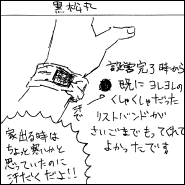 黒松丸
設営完了時から
既にヨレヨレの
くしゃくしゃだった
リストバンドが
さいごまでもってくれて
よかったです
汗で
家出る時は
ちょっと寒いかと
思っていたのに
汗だくだよ!!